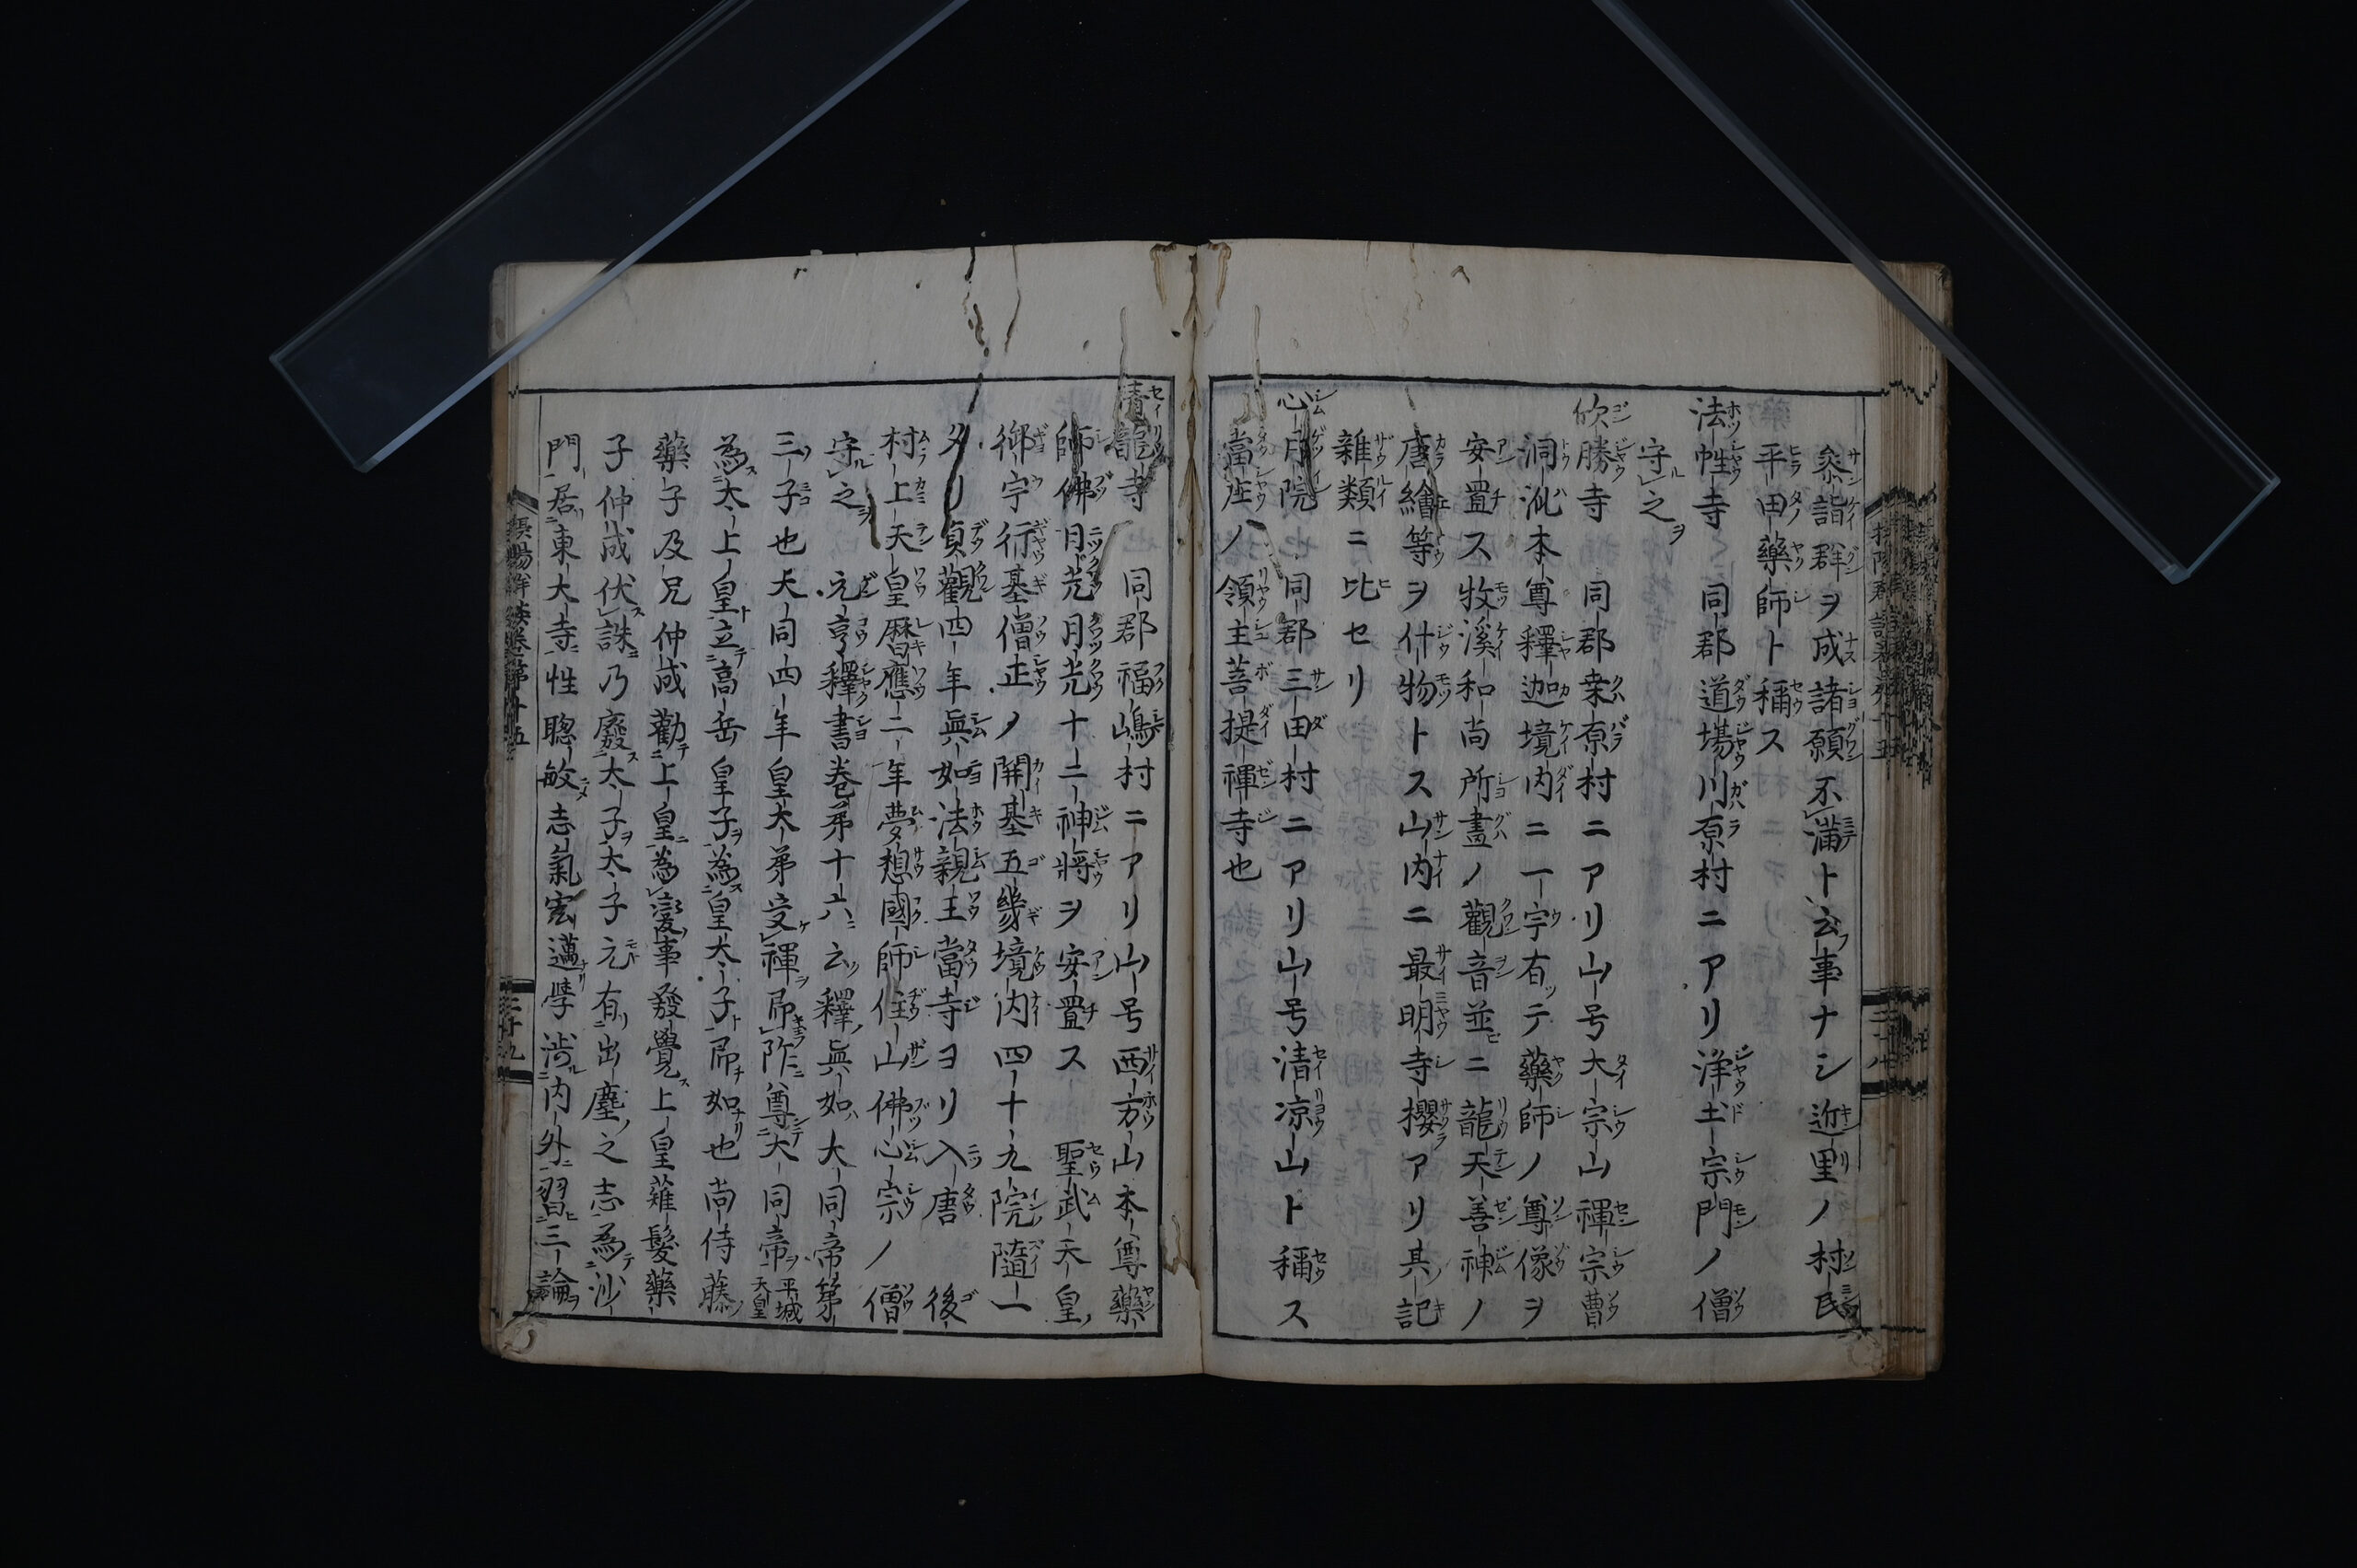 叅詣群ヲ成諸願不滿ト云事ナシ近里ノ村民
平田藥師ト稱ス
法性寺 同郡道塲川原村ニアリ淨土宗門ノ僧
守之
欣勝寺 同郡桒原村ニアリ山号大宗山禪宗曹
洞沠本尊釋迦境内ニ一宇有テ藥師ノ尊像ヲ
安置ス牧溪和尚所畫ノ觀音並ニ龍天善神ノ
唐繪等ヲ什物トス山内ニ最明寺櫻アリ其記
雜類ニ比セリ
心月院 同郡三田村ニアリ山号清凉山ト稱ス
當庄ノ領主菩提禪寺也
清龍寺 同郡福嶋村ニアリ山号西方山本尊藥
師佛日光月光十二神將ヲ安置ス 聖武天皇
御宇行基僧正ノ開基五畿境内四十九院隨一
タリ貞觀四年眞如法親王當寺ヨリ入唐 後
村上天皇曆應二年夢想國師住山佛心宗ノ僧
守之 元亨釋書卷第十六云釋眞如大同帝第
三子也大同四年皇太弟受禪帝阼尊大同帝平城天皇
為太上皇立高岳皇子為皇太子帝如也尚侍藤
藥子及兄仲成勸上皇為變事發覺上皇薙髮藥
子仲成伏誅乃廢太子太子元有出塵之志為沙
門居東大寺性聦敏志氣宏邁學渉内外習三論
攝陽群談卷第十五
三十九